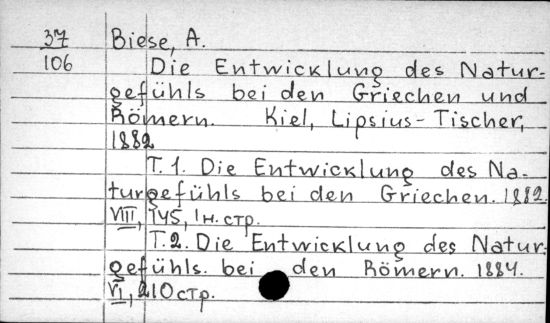 37 Biese, A.
106 Die Entwicklung des Natur-
gefühls bei den Griechen und
Römern. Kiel, Lipsius-Tischer,
1882
T. 1. Die Entwicklung des Na-
turgefühls bei den Griechen. 1882.
VIII, 145, 1 н. стр.
T. 2. Die Entwicklung des Natur-
gefühls. bei den Römern. 1884.
VI, 210 стр.